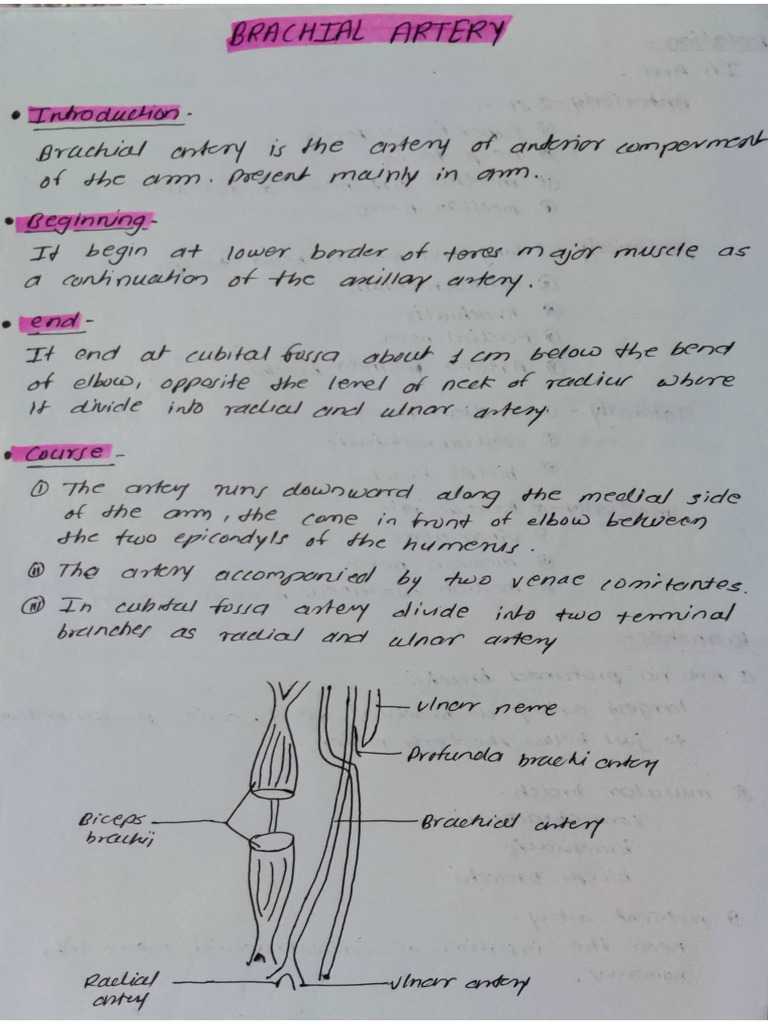 BRACHIAL ARTERY
• Introduction -
Brachial artery is the artery of anterior comperment
of the arm. Present mainly in arm.
• Beginning -
It begin at lower border of teres major muscle as
a continuation of the axillay artery.
• end -
It end at cubital fossa about 1 cm below the bend
of elbow, opposite the level of neck of radius where
it divide into radial and ulnar artery.
• Course -
(i) The artery runs downward along the medial side
of the arm, the come in front of elbow between
the two epicondyls of the humerus.
(ii) The artery accompanied by two venae comitantes.
(iii) In cubital fossa artery divide into two terminal
branches as radial and ulnar artery
ulnar nerve
Profunda brachi artery
Biceps
brachii
Brachial artery
Radial
artery
ulnar artery